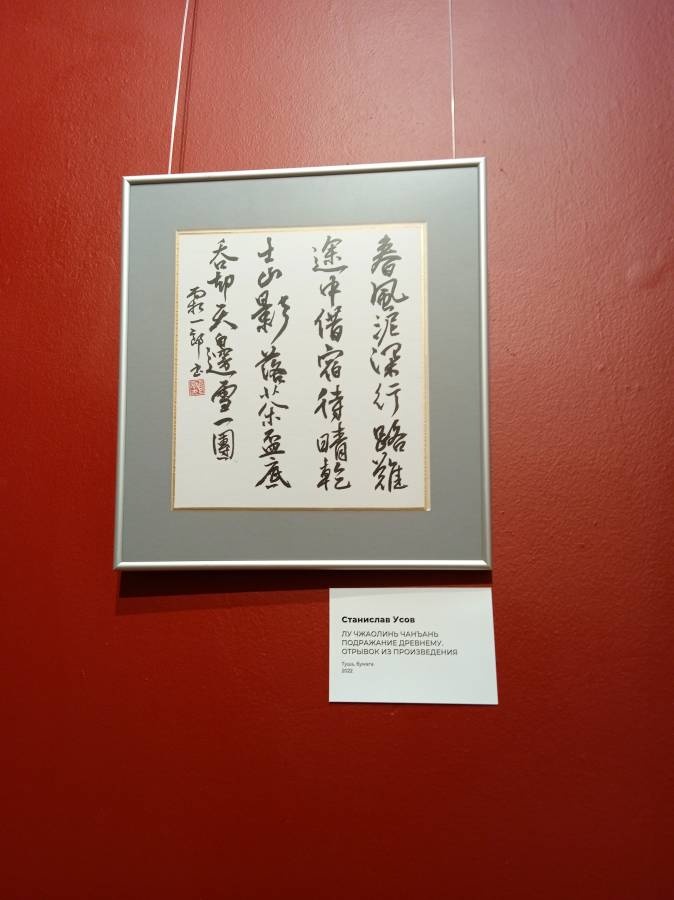 春風泥深行路難
途中借宿待晴乾
士山影落茶盃底
呑却天邊雪一團
霜一郎书
Станислав Усов
ЛУ ЧЖАОЛИНЬ ЧАНЪАНЬ
ПОДРАЖАНИЕ ДРЕВНЕМУ.
ОТРЫВОК ИЗ ПРОИЗВЕДЕНИЯ
Тушь, бумага
2022